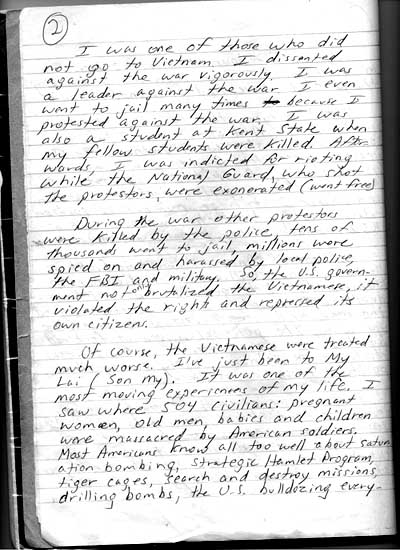 2
I was one of those who did
not go to Vietnam. I dissented
against the war vigorously. I was
a leader against the war. I even
went to jail many times because I
protested against the war. I was
also a student at Kent State when
my fellow students were killed. After-
wards, I was indicted for rioting
while the National Guard, who shot
the protestors, were exonerated (went free)
During the war other protestors
were killed by the police, tens of
thousands went to jail, millions were
spied on and harassed by local police,
the FBI and military. So, the U.S. govern-
ment not only brutalized the Vietnamese, it
violated the rights and repressed its
own citizens.
Of course, the Vietnamese were treated
much worse. I've just been to My
Lai (Son My). It was one of the
most moving experiences of my life. I
saw where 504 civilians: pregnant
women, old men, babies and children
were massacred by American soldiers.
Most Americans know all too well about satur-
ation bombing, Strategic Hamlet Program,
tiger cages, search and destroy missions,
drilling bombs, the U.S. bulldozing every-